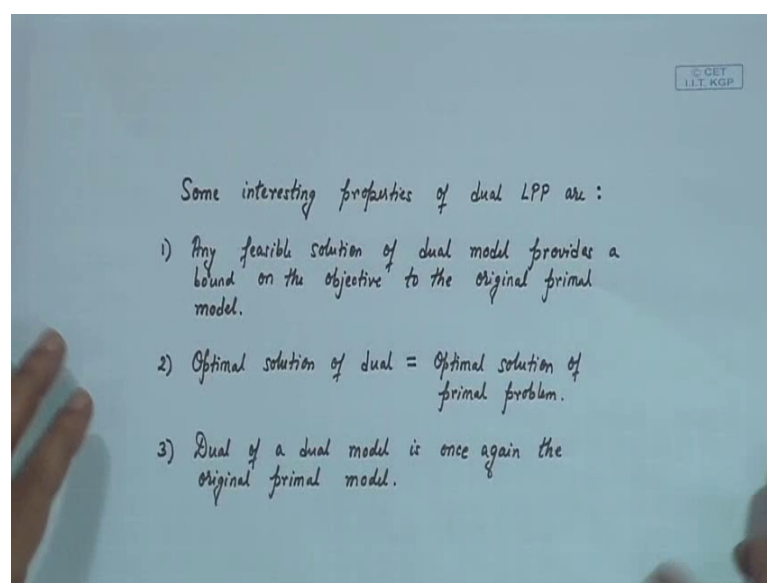 © CET
I.I.T. KGP
Some interesting properties of dual LPP are :
1) Any feasible solution of dual model provides a
bound on the objective to the original primal
model.
2) Optimal solution of dual = Optimal solution of
primal problem.
3) Dual of a dual model is once again the
original primal model.